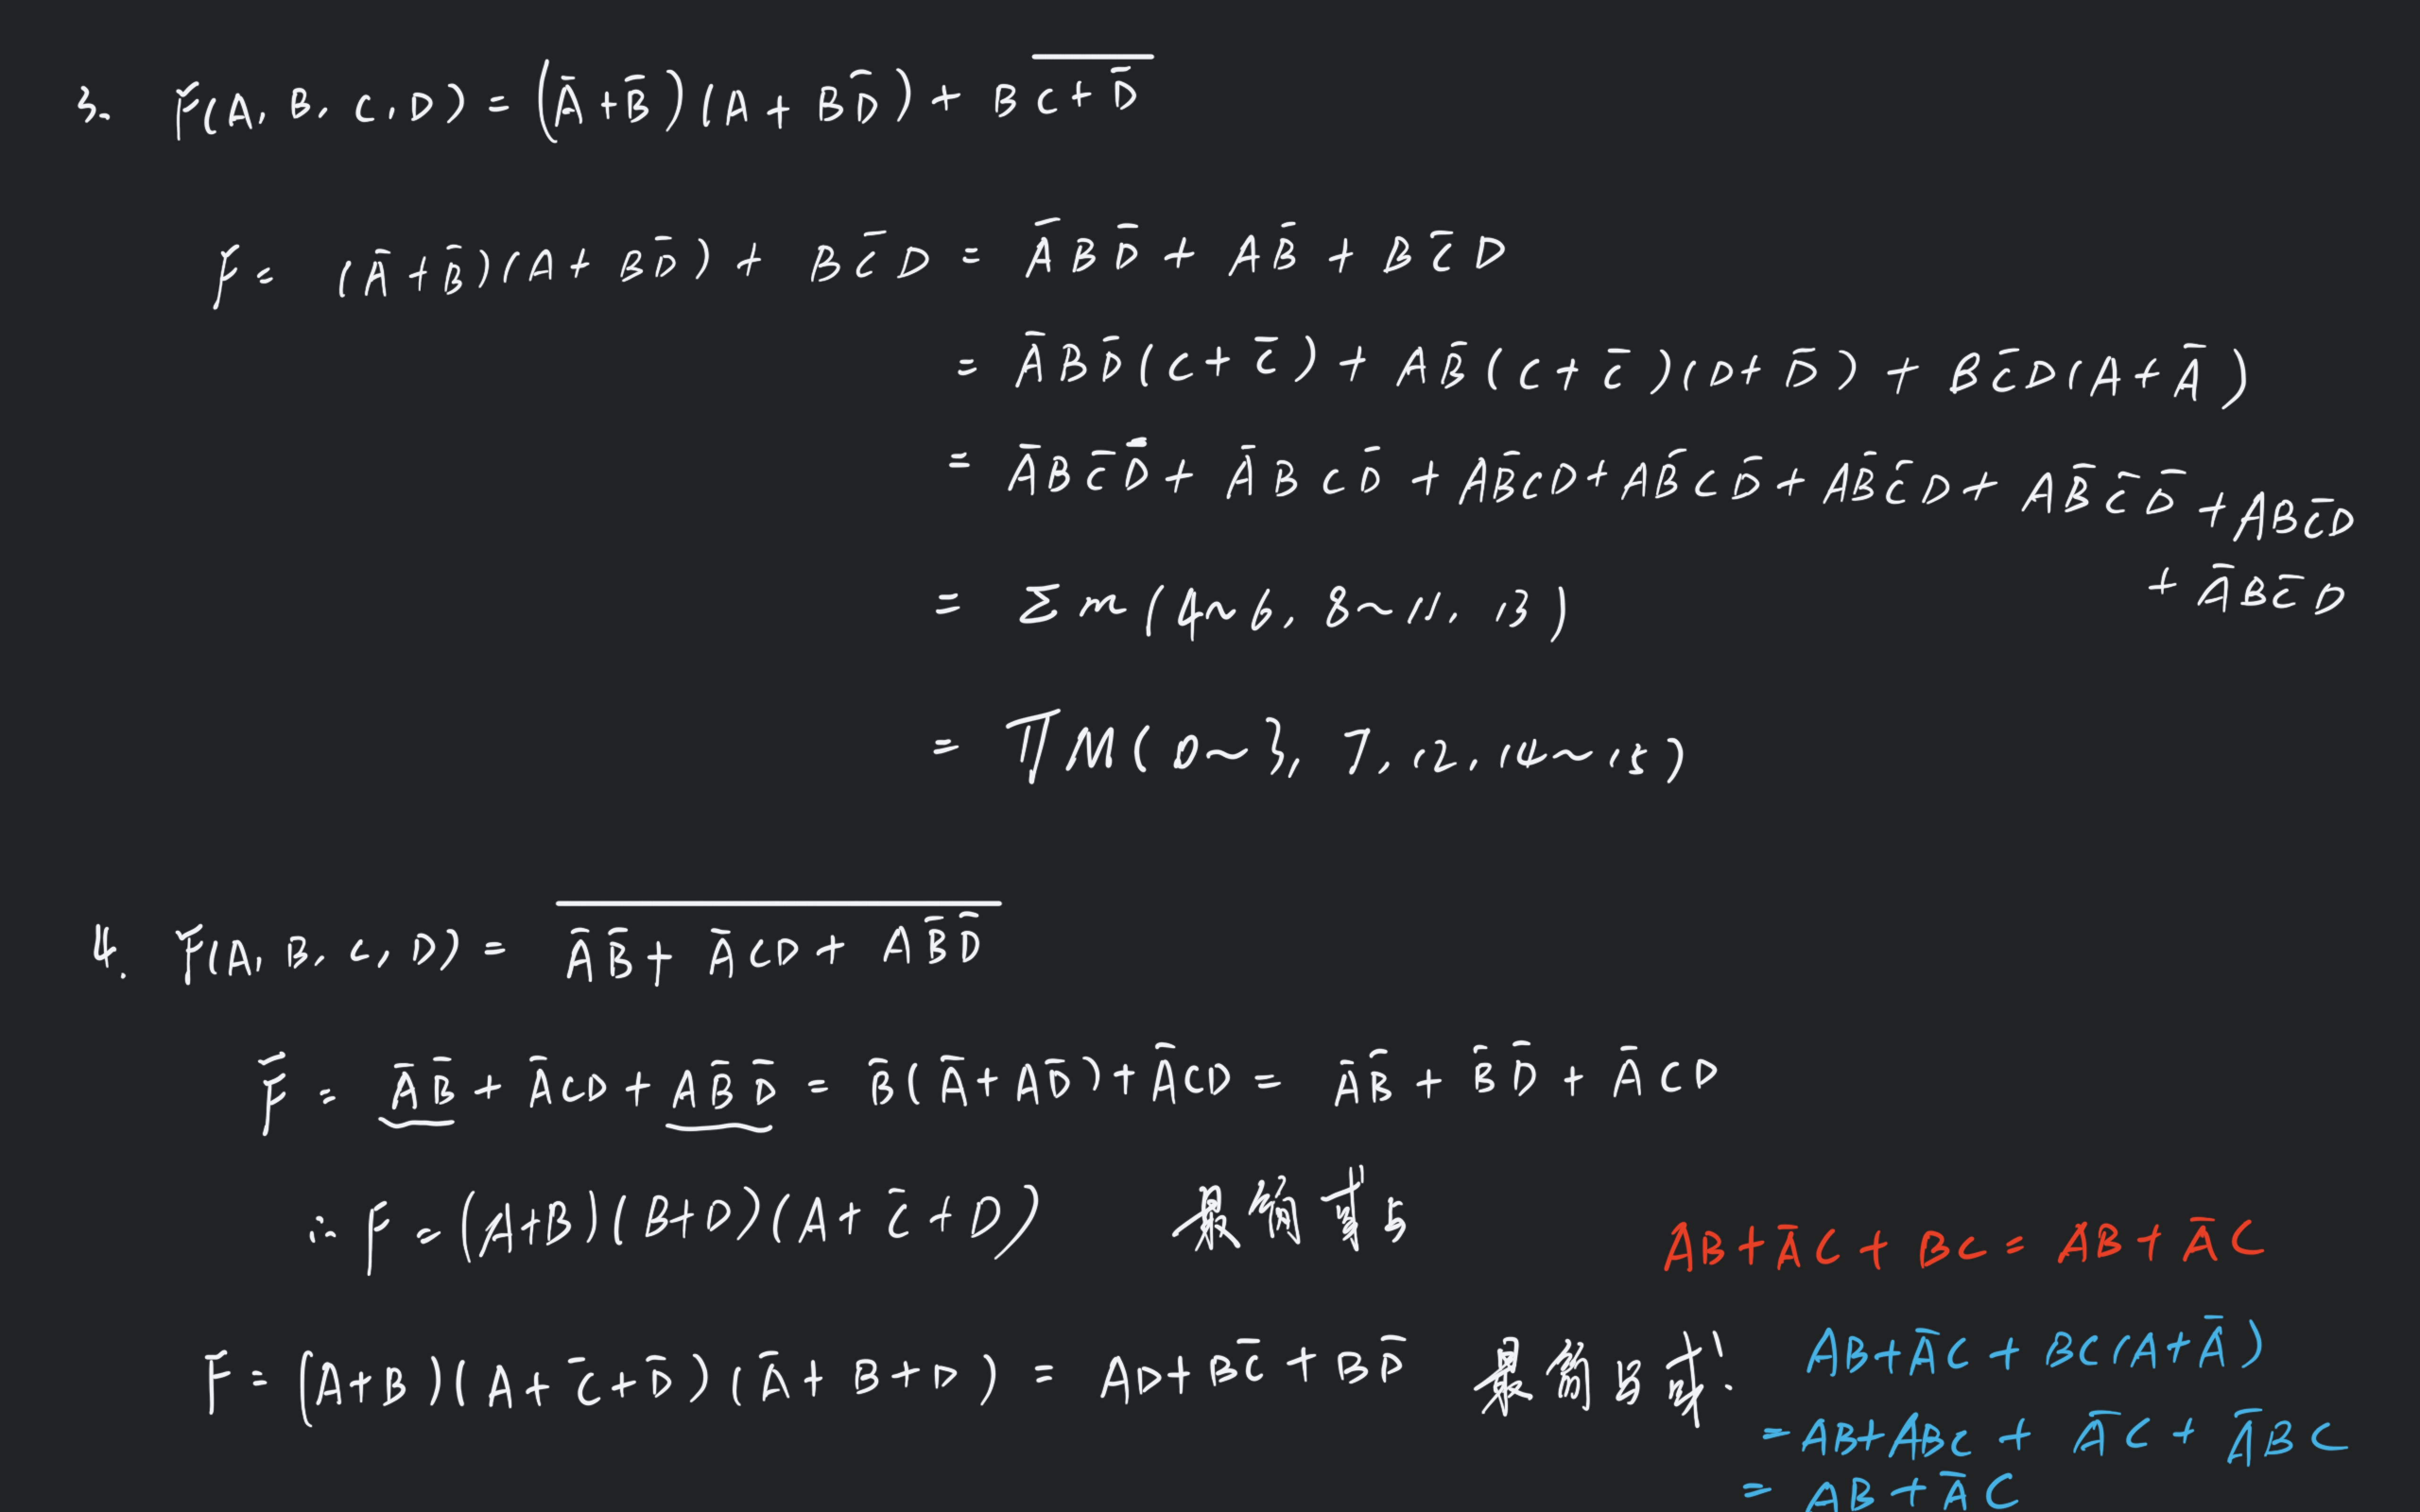 3. F(A, B, C, D) = (Ā+B̄)(A+BD̄) + B \overline{C+D̄}
F = (Ā+B̄)(A+BD̄) + BC̄D = ĀBD̄ + AB̄ + BC̄D
= ĀBD̄(C+C̄) + AB̄(C+C̄)(D+D̄) + BC̄D(A+Ā)
= ĀBC̄D̄ + ĀBCD̄ + AB̄CD + AB̄CD̄ + AB̄C̄D + AB̄C̄D̄ + ABC̄D
+ ĀBC̄D
= Σm(4~6, 8~11, 13)
= ∏M(0~3, 7, 12, 14~15)
4. F(A, B, C, D) = \overline{ĀB̄ + ĀCD + AB̄D̄}
F̄ = ĀB̄ + ĀCD + AB̄D̄ = B̄(Ā+AD̄) + ĀCD = ĀB̄ + B̄D̄ + ĀCD
∴ F = (A+B)(B+D)(A+C̄+D) 最简或与
AB+ĀC+BC = AB+ĀC
F = (A+B)(A+C̄+D̄)(Ā+B+D) = AD+BC̄+BD̄ 最简与或.
AB+ĀC+BC(A+Ā)
= AB+ABC+ĀC+ĀBC
= AB+ĀC